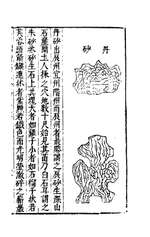 丹砂
丹砂出辰州宜州階州而辰州者最勝謂之辰砂生深山
石崖間土人採之穴地數十尺始見其苗乃白石耳謂之
朱砂床砂生石上其塊大者如雞子小者如石榴子狀若
芙蓉頭箭鏃連床者紫黯若鐵色而光明瑩澈碎之嶄巖